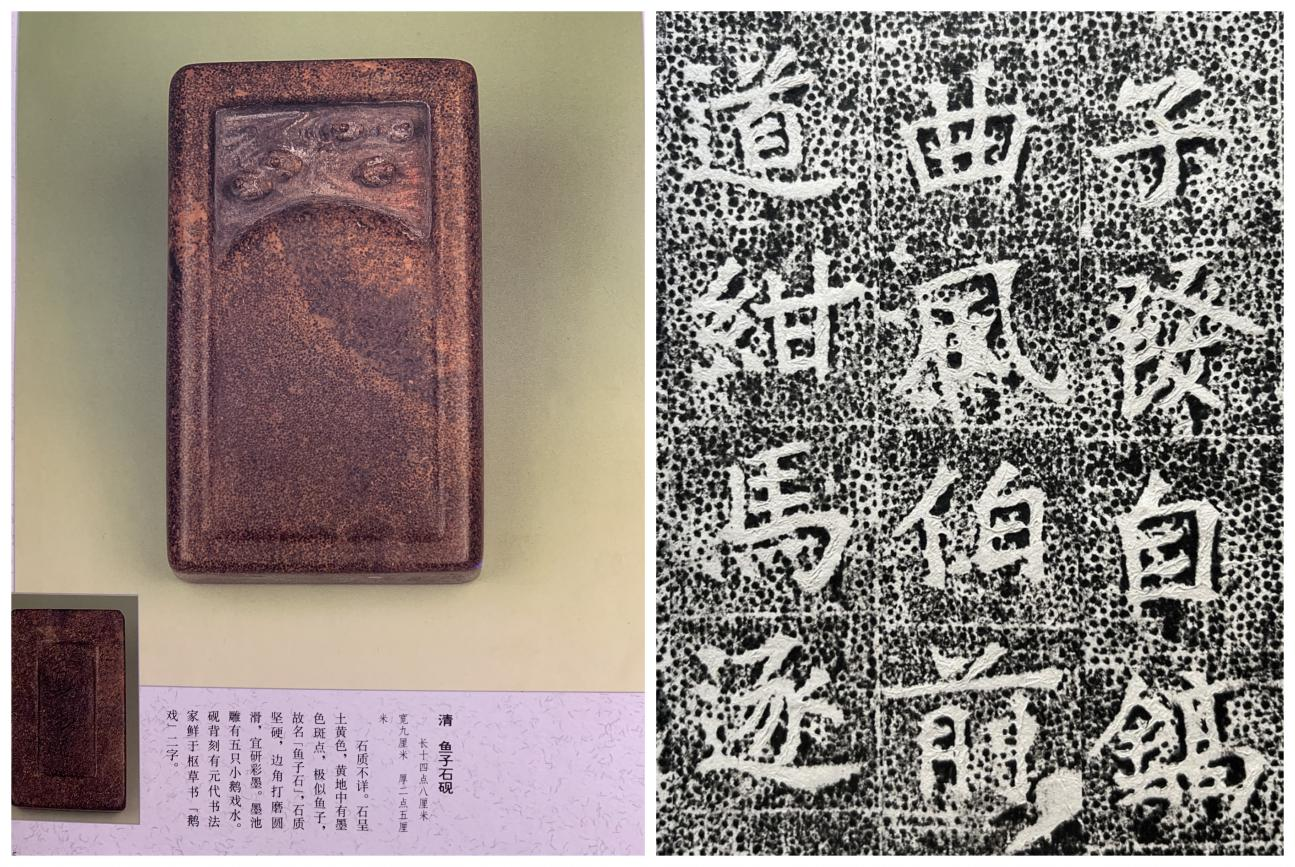 清 鱼子石砚
长十四点八厘米
宽九厘米 厚二点五厘
米
石质不详。石呈
土黄色，黄地中有墨
色斑点，极似鱼子，
故名「鱼子石」，石质
坚硬，边角打磨圆
滑，宜研彩墨。墨池
雕有五只小鹅戏水。
砚背刻有元代书法
家鲜于枢草书「鹅
戏」二字。
子發自鎬
曲風伯前
道紺馬逐